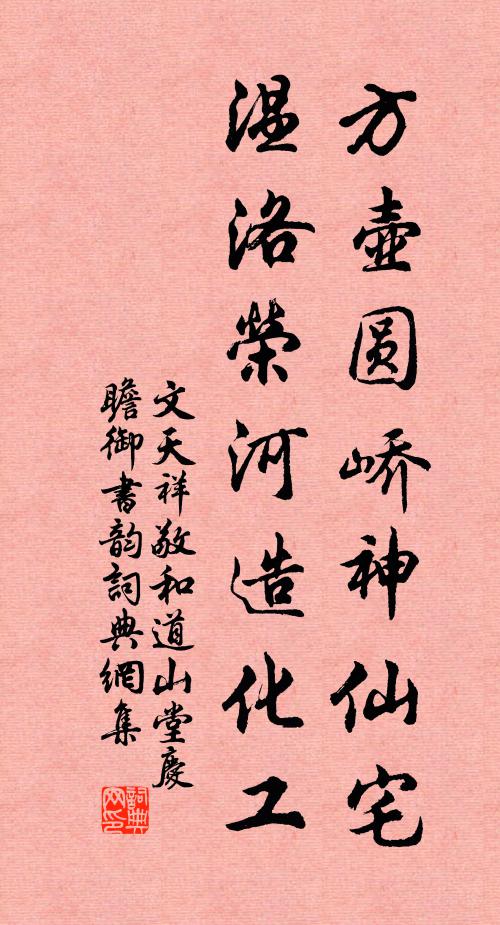 方壺圆嶠神仙宅
温洛榮河造化工
文天祥敬和道山堂慶
瞻御書韵詞典網集
詞典网印